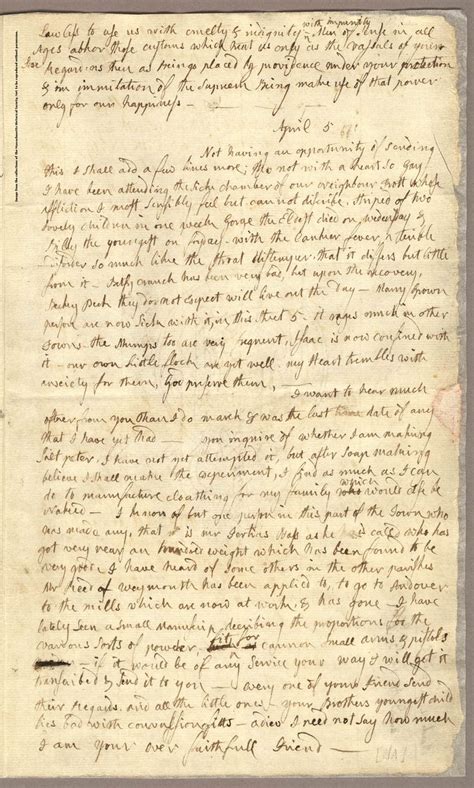 Lawless to use us with cruelty and indignity with impunity. Men of Sense in all
Ages abhor those customs which treat us only as the vassals of your
Sex Regard us then as Beings placed by providence under your protection
& in immitation of the Supreem Being make use of that power
only for our happiness —
April 5
Not having an opportunity of sending
this I shall add a few lines more; tho not with a heart so gay
I have been attending the sick chamber of our neighbour Trott whose
affliction I most sensibly feel but cannot discribe, striped of two
lovely children in one week. Gorge the Eldest died on wedensday &
Billy the youngest on fryday, with the Canker fever, a terible
disorder so much like the throat distemper, that it differs but little
from it — Betsy Cranch has been very bad, but upon the recovery,
Becky Peck they do not expect will live out the day — Many grown
person are now sick with it, in this street 5 — it rages much in other
Towns. the Mumps too are very frequent, Isaac is now confined with
it — our own little flock are yet well. my Heart trembles with
anxiety for them, God preserve them,—
I want to hear much
oftner from you than I do. march 8 was the last date of any
that I have yet had — you inquire of whether I am making
Salt peter, I have not yet attempted it, but after Soap making
believe I shall make the experiment, I find as much as I can
do to manufacture cloathing for my family which would else be
Naked — I know of but one person in this part of the Town who
has made any, that is mr Tertias Bass as he is calld who has
got very near an hundred weight which has been found to be
very good I have heard of some others in the other parishes
Mr Reed of weymouth has been applied to, to go to Andover
to the mills which are now at work, & has gone — I have
lately seen a small Manuscrip describing the proportions for the
various sorts of powder, fit for cannon small arms & pistols
— if it would be of any Service your way I will get it
transcribed & send it to you — every one of your Friend send
their Regards, and all the little ones — your Brothers youngest child
lies bad with convulsion fitts — adieu I need not say how much
I am your ever faithfull Friend —